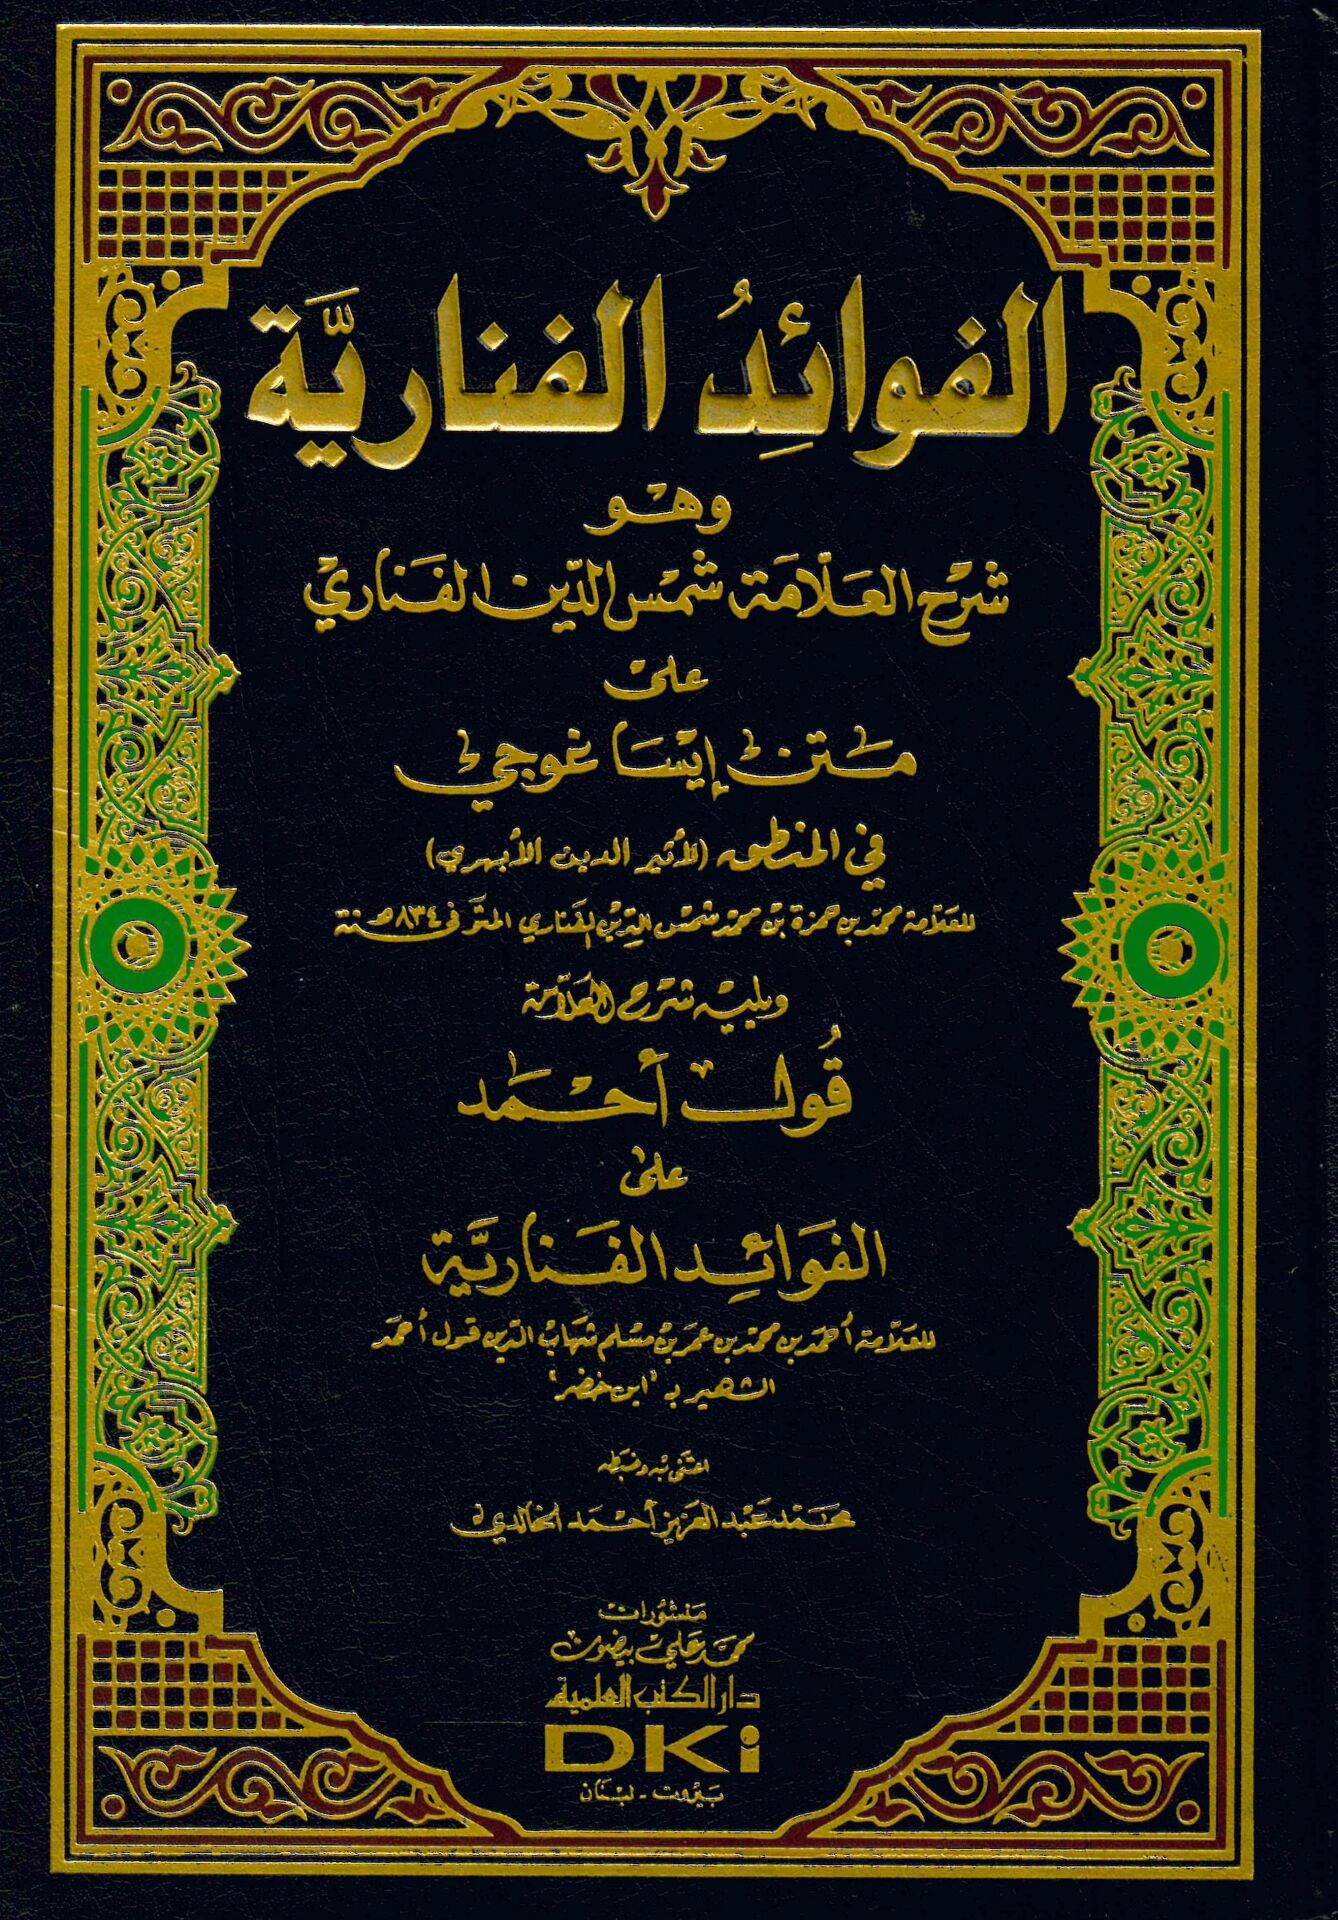 الفوائدُ الفناريَّة
وهو
شرح العلّامة شمس الدّين الفناري
على
متن إيسا غوجي
في المنطق (لأثير الدين الأبهري)
للعلّامة محمّد بن حمزة بن محمّد شمس الدّين الفناري المتوفى سنة ٨٣٤هـ
ويليه شرح العلّامة
قُول أحمد
على
الفَوَائِد الفَناريَّة
للعلّامة أحمد بن محمد بن عمر بن مسلم شهاب الدين قول أحمد
الشهير بـ "ابن خضر"
اعتنى به وضبطه
محمد عبد العزيز أحمد الخالدي
منشورات
محمد علي بيضون
دار الكتب العلمية
DKi
بيروت - لبنان